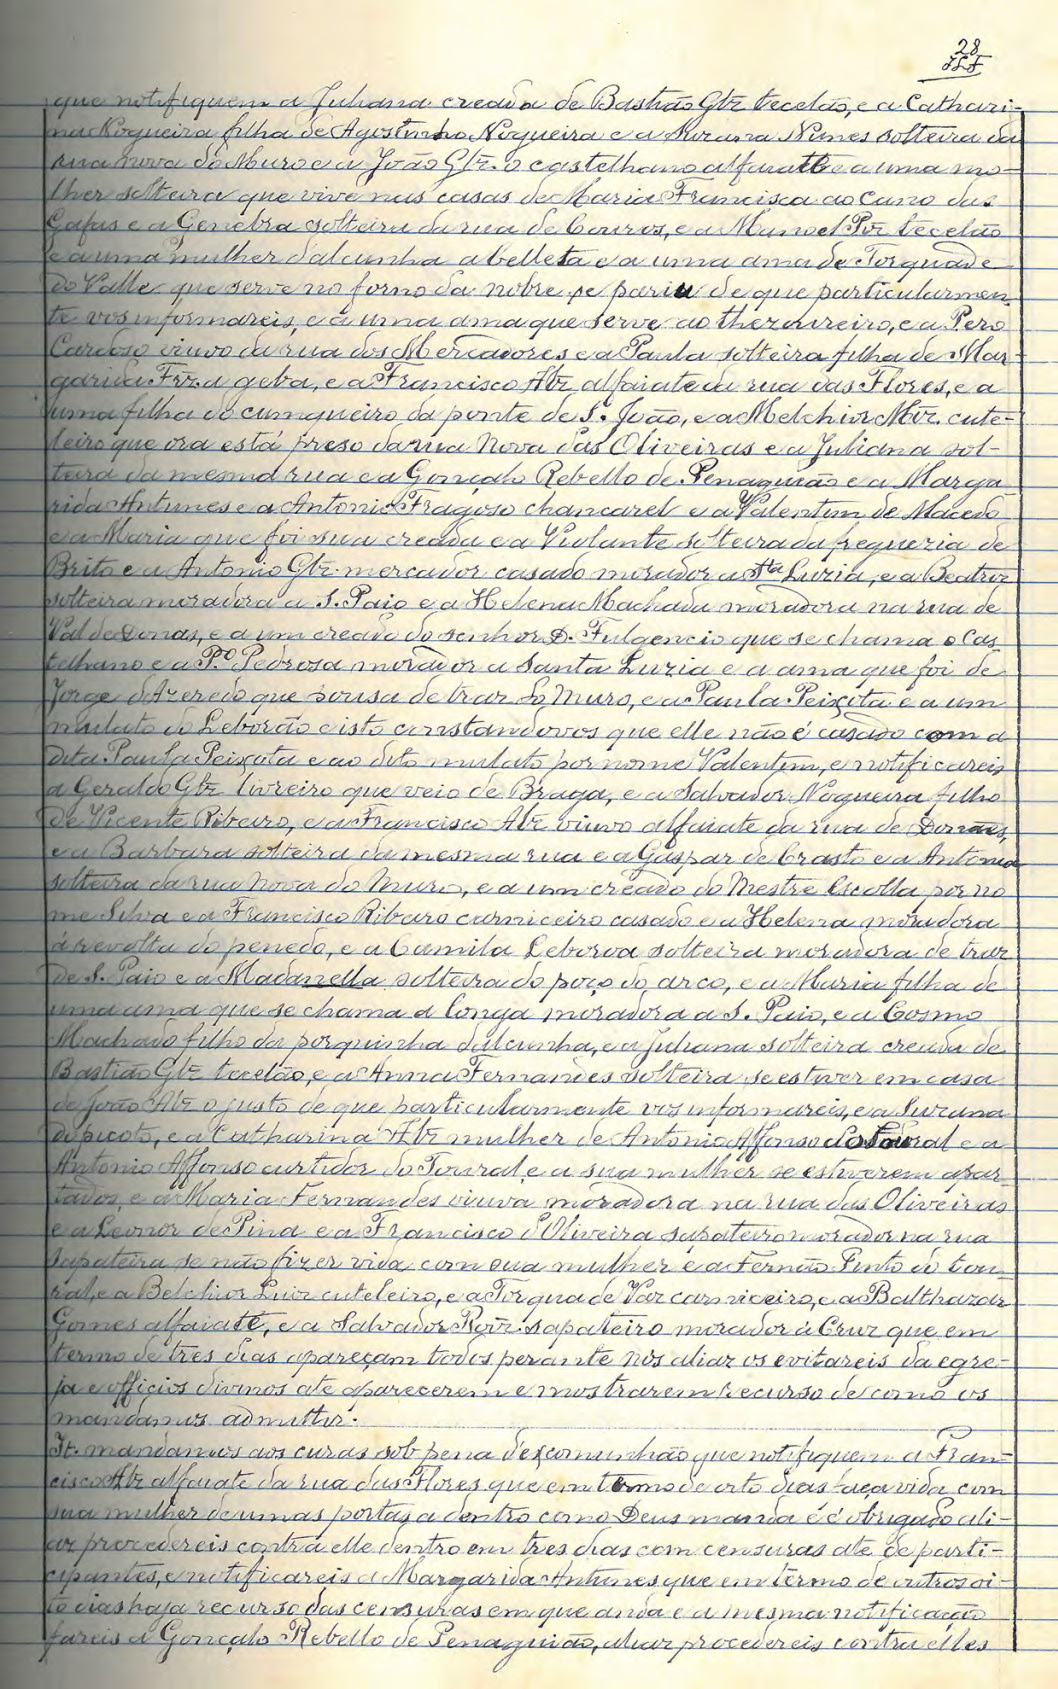 28
que notifiquem a Juliana creada de Bastião Glz tecelão, e a Cathari-
na Nogueira filha de Agostinho Nogueira e a Nunes solteira da
rua nova do Muro e a João Glz. o castelhano alfaiate e a uma mo-
lher solteira que vive nas casas de Maria Francisca ao Cano das
Gafas e a Genebra solteira da rua de Couros, e a Manoel Piz tecelão
e a uma mulher d'alcunha a belleta e a uma ama de Torquade
do Valle que serve no forno da nobre se pariu de que particularmen
te vos informareis, e a uma ama que serve ao thezoureiro, e a Pero
Cardoso viuvo da rua dos Mercadores e a Paula solteira filha de Mar-
garida Frz. a geba, e a Francisco Alz alfaiate da rua das Flores, e a
uma filha do da ponte de S. João, e a Melchior Miz. cute-
leiro que ora está preso da rua Nova das Oliveiras e a Juliana sol-
teira da mesma rua e a Gonçalo Rebello de Penaguião e a Marga-
rida Antunes e a Antonio Fragoso chancarel e a Valentim de Macedo
e a Maria que foi sua creada e a Violante solteira da freguezia de
Brito e a Antonio Glz. mercador casado morador a Sta Luzia, e a Beatriz
solteira moradora a S. Paio e a Helena Machada moradora na rua de
Val de Donas, e a um creado do senhor D. Fulgencio que se chama o Cas
telhano e a P.º Pedrosa morador a Santa Luzia e a ama que foi de
Jorge d'Azeredo que pousa de traz do Muro, e a Paula Peixota e a um
mulato do Leborão e isto constandovos que elle não é casado com a
dita Paula Peixota e ao dito mulato por nome Valentim, e notificareis
a Geraldo Glz livreiro que veio de Braga, e a Salvador Nogueira filho
de Vicente Ribeiro, e a Francisco Alz viuvo alfaiate da rua de Donaes,
e a Barbara solteira da mesma rua e a Gaspar de Crasto e a Antonia
solteira da rua nova do Muro, e a um creado do Mestre Escolla por no
me Silva e a Francisco Ribeiro carniceiro casado e a Helena moradora
á revolta do penedo, e a Camila Leboroa solteira moradora de traz
de S. Paio e a Madanella solteira do poço do arco, e a Maria filha de
uma ama que se chama a longa moradora a S. Paio, e a Cosmo
Machado filho da porquinha d'alcunha, e a Juliana solteira creada de
Bastião Glz tecelão, e a Anna Fernandes solteira se estiver em casa
de João Alz o justo de que particularmente vos informareis, e a Suzana
do picoto, e a Catharina Alz mulher de Antonio Affonso do Toural e a
Antonio Affonso curtidor do Toural, e a sua mulher se estiverem apar
tados, e a Maria Fernandes viuva moradora na rua das Oliveiras
e a Leonor de Pina e a Francisco d'Oliveira sapateiro morador na rua
sapateira se não fizer vida com sua mulher e a Fernão Pinto do tou-
ral, e a Belchior Luiz cuteleiro, e a Torquade Vaz carniceiro, e a Balthazar
Gomes alfaiate, e a Salvador Roiz sapateiro morador á Cruz que em
termo de tres dias apareçam todos perante nós aliaz os evitareis da egre-
ja e officios divinos ate aparecerem e mostrarem recurso de como os
mandámos admittir.
It. mandamos aos curas sob pena d'excomunhão que notifiquem a Fran-
cisco Alz alfaiate da rua das Flores que em termo de oito dias faça vida com
sua mulher de umas portas a dentro como Deus manda e é obrigado ali-
az procedereis contra elle dentro em tres dias com censuras até de parti-
cipantes, e notificareis a Margarida Antunes que em termo de outros oi-
to dias haja recurso das censuras em que anda e a mesma notificação
fareis a Gonçalo Rebello de Penaguião, aliaz procedereis contra elles